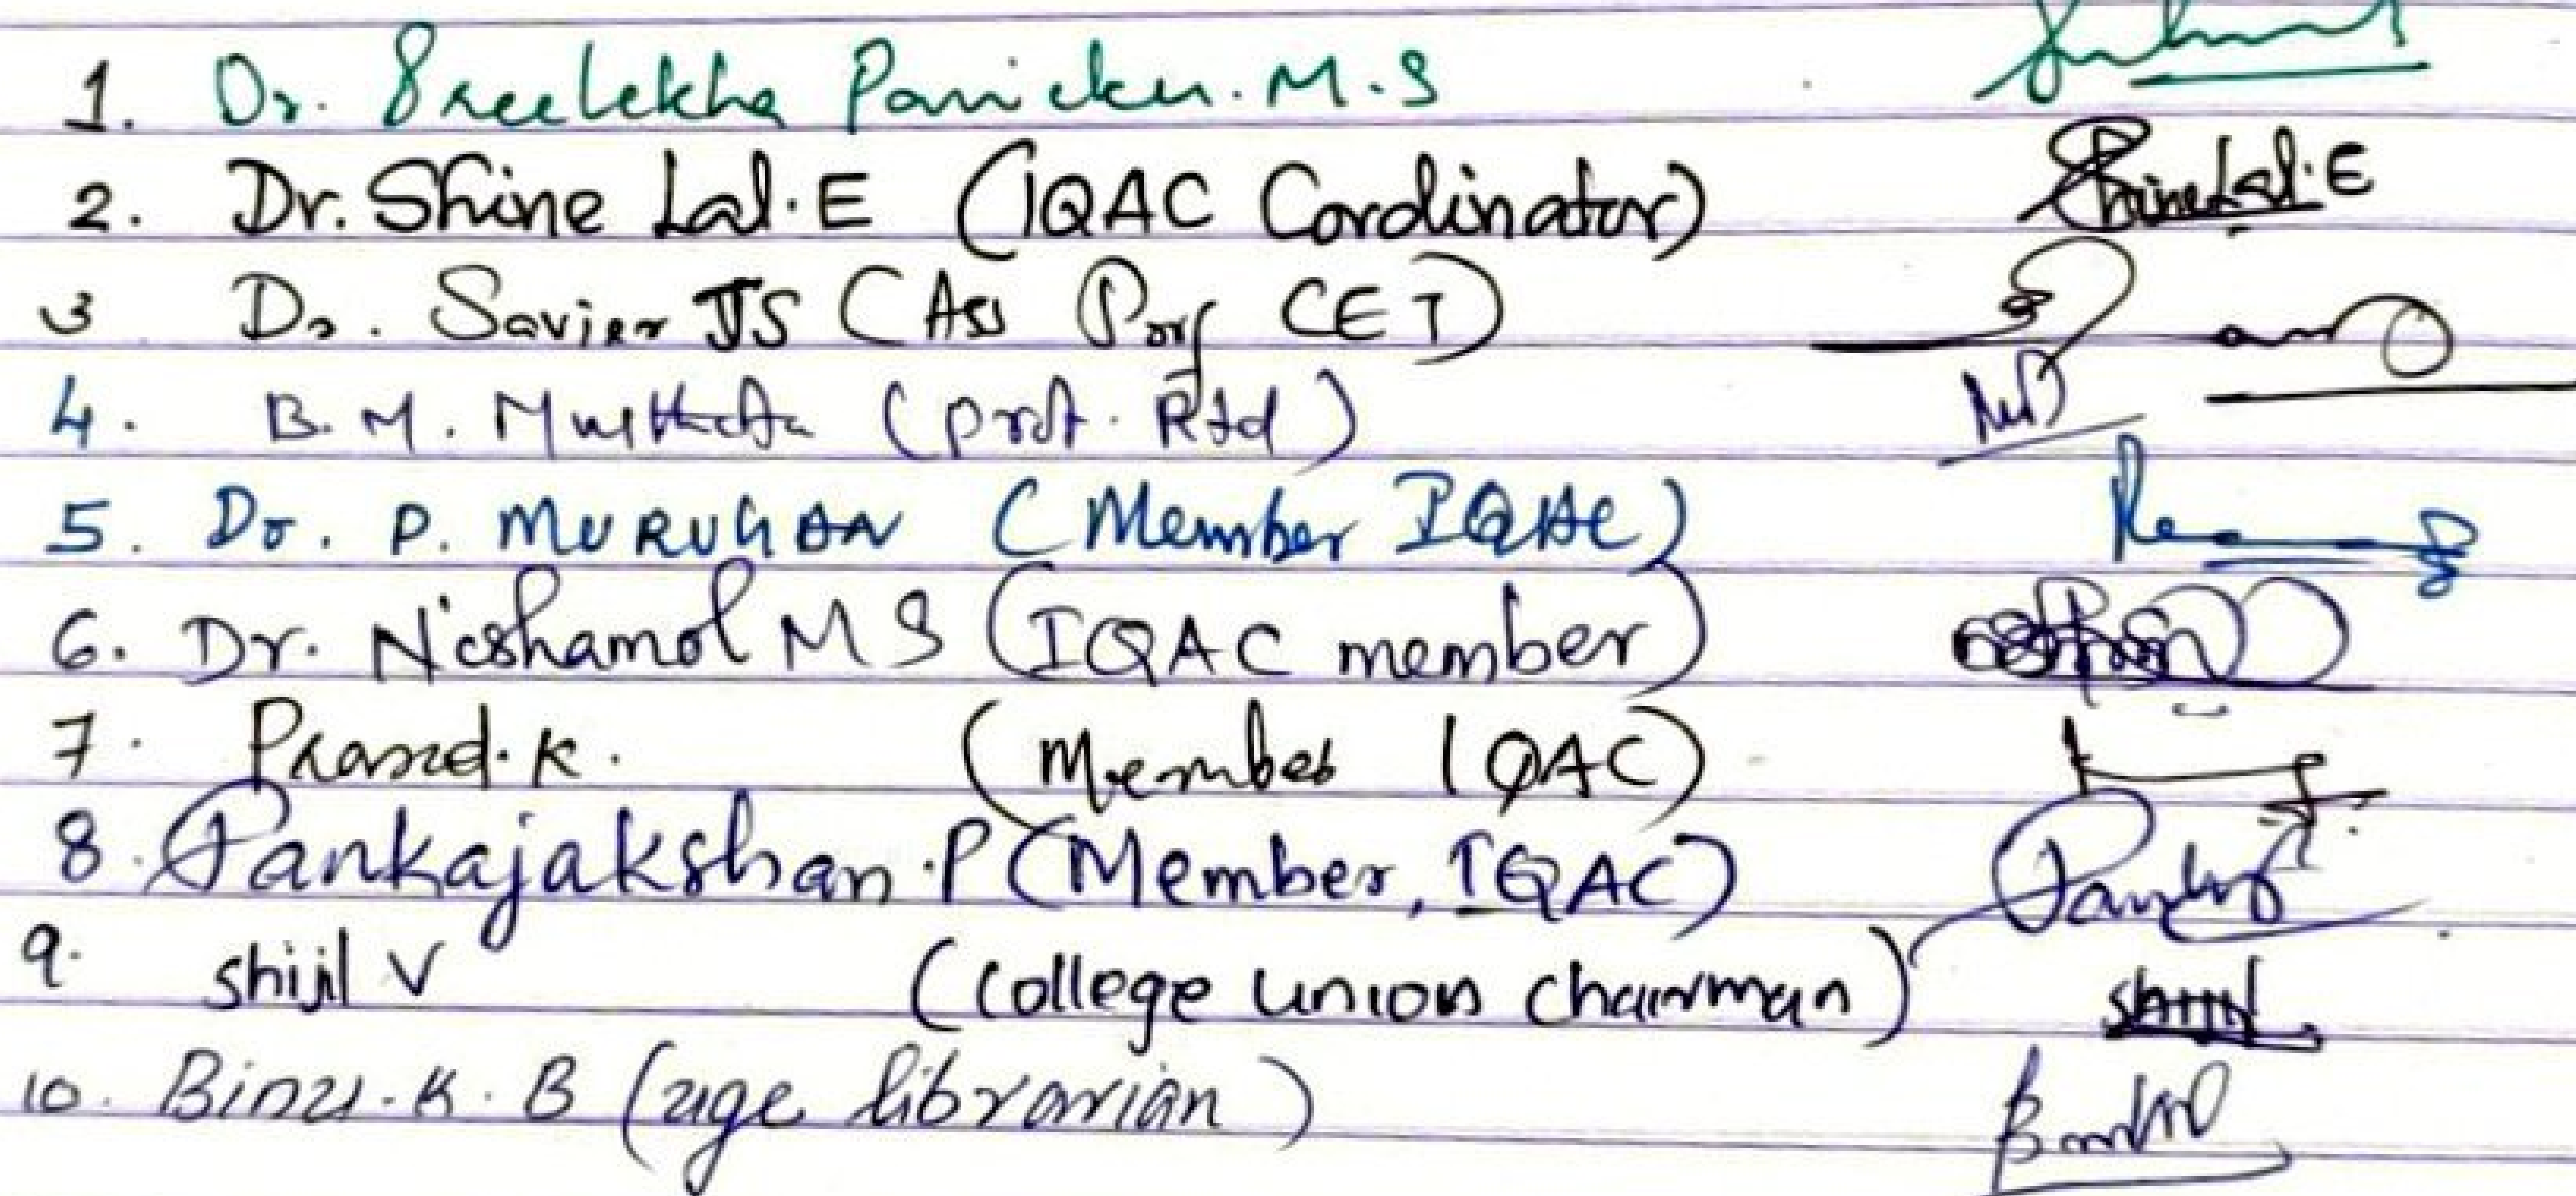 1. Dr. Sreelekha Panicker. M.S
2. Dr. Shine Lal. E (IQAC Cordinator) Shine Lal. E
3 Dr. Savier JS (Ass Prof CET)
4. B. M. (prof. Rtd)
5. Dr. P. MURUGAN (Member IQAC)
6. Dr. Nishamol M S (IQAC member)
7. Prasad. K. (Member IQAC)
8. Pankajakshan. P (Member, IQAC)
9. shijil V (college union chairman) shijil
10. Binu. K. B (ugc librarian)